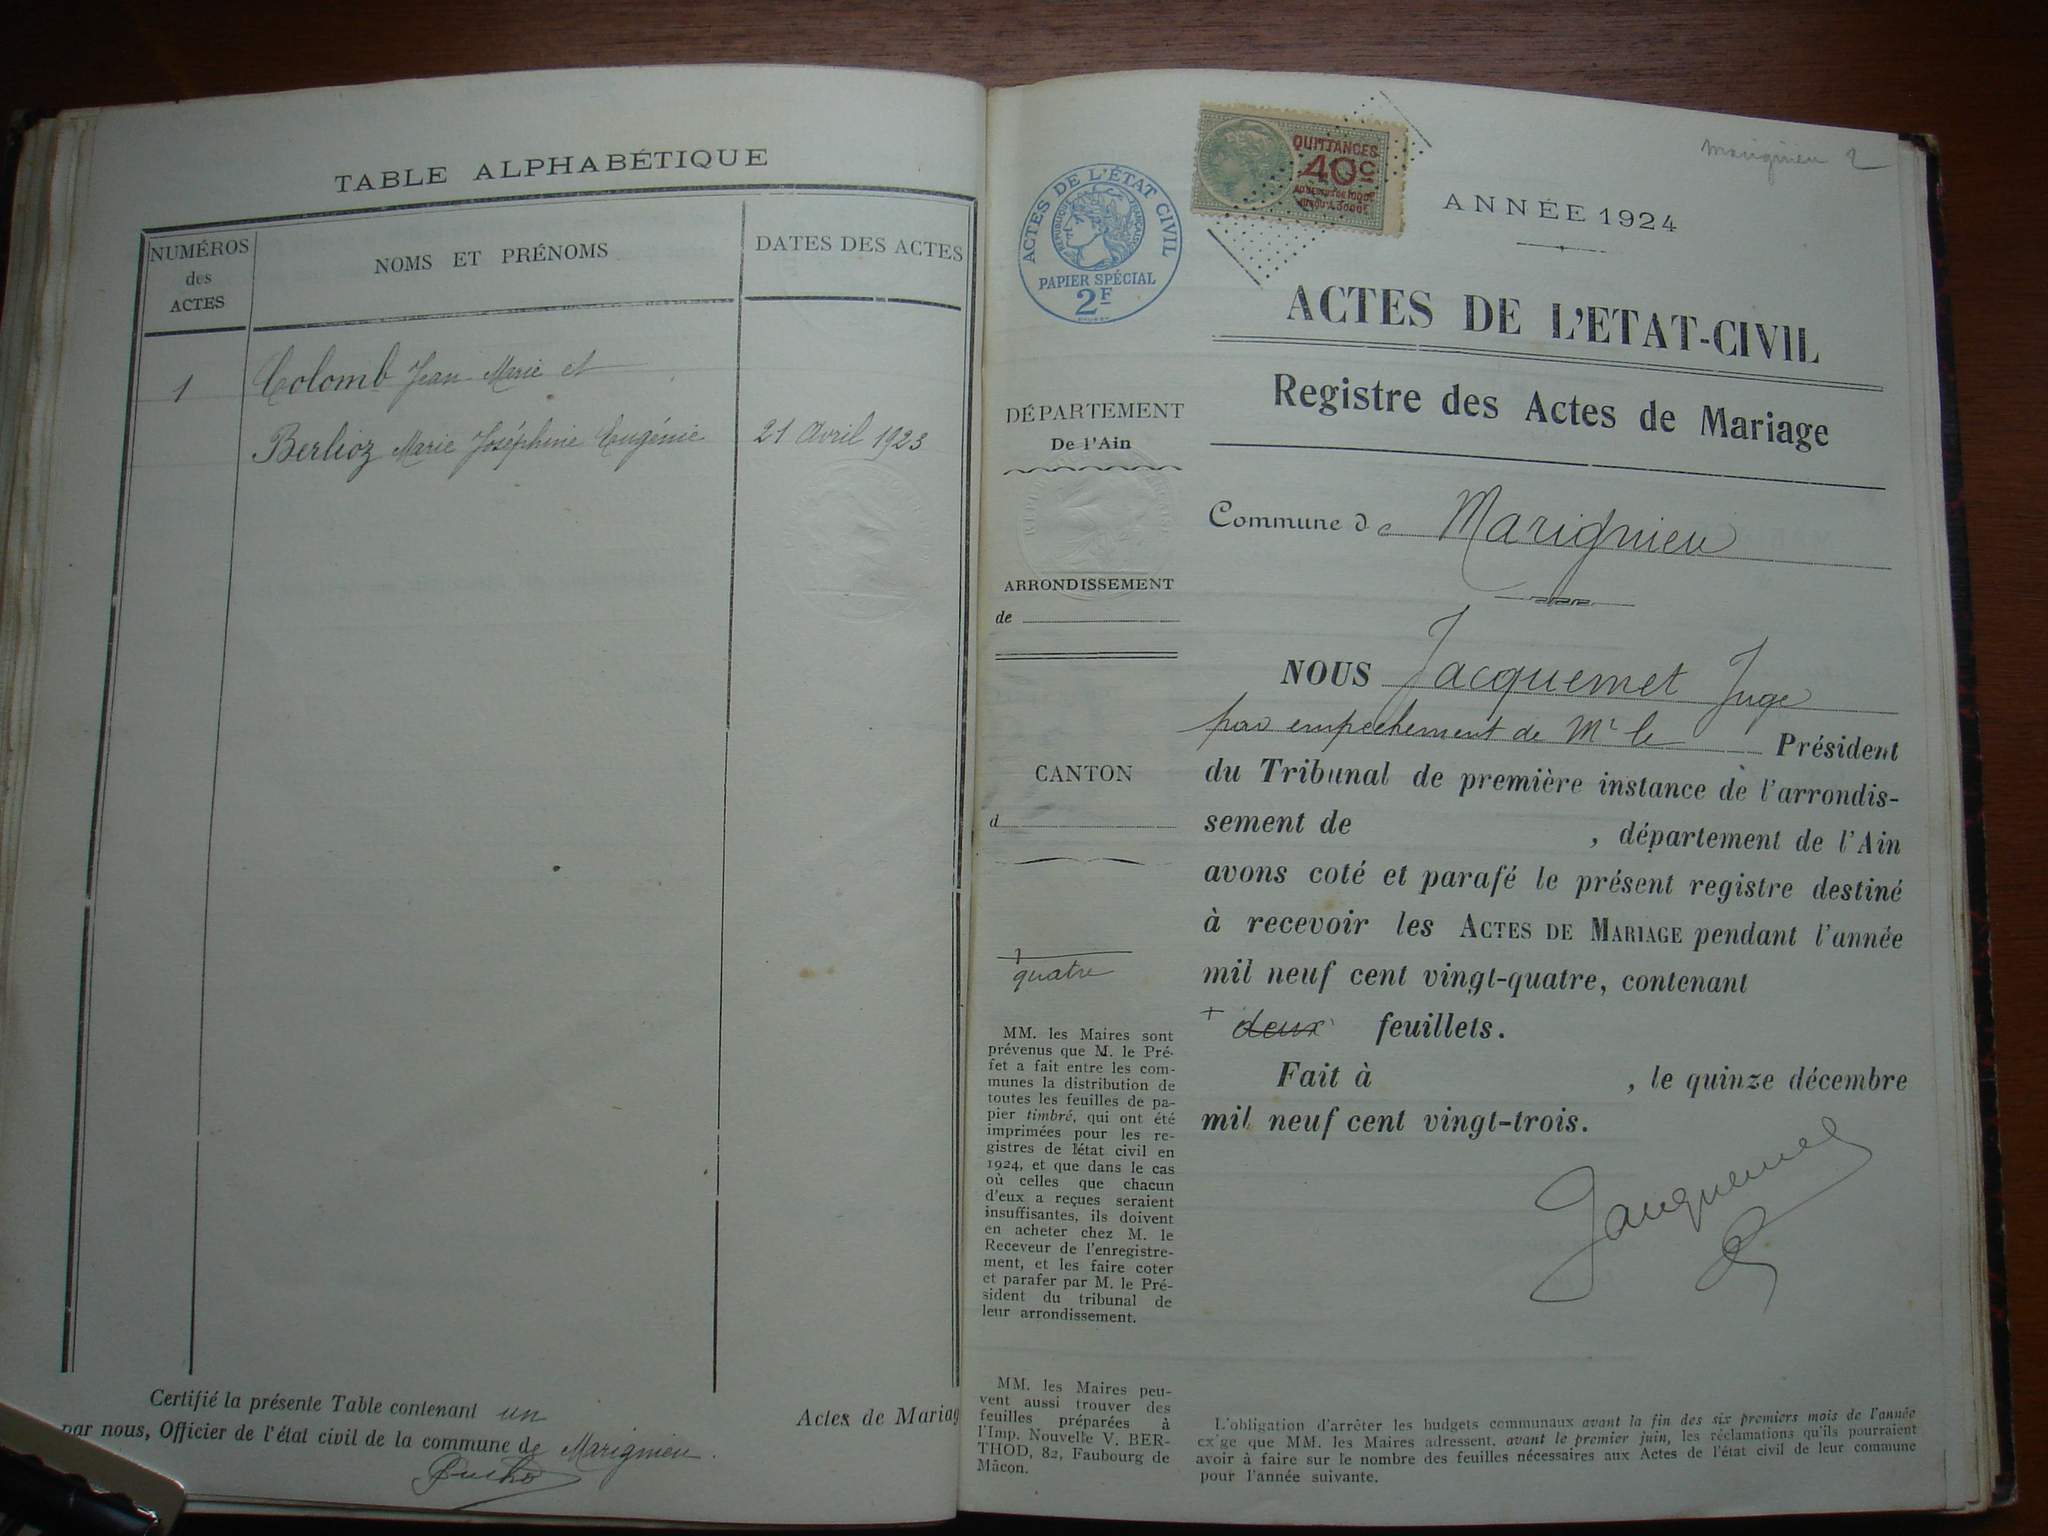 TABLE ALPHABÉTIQUE
NUMÉROS
des
ACTES
NOMS ET PRÉNOMS
DATES DES ACTES
1
Colomb Jean Marie et
Berlioz Marie Joséphine Eugénie
21 Avril 1923
Certifié la présente Table contenant un
par nous, Officier de l'état civil de la commune de Marignieu.
Actes de Mariag
Marignieu 2
QUITTANCES
40c
ACTES DE L'ÉTAT CIVIL
RÉPUBLIQUE FRANÇAISE
PAPIER SPÉCIAL
2F
ANNÉE 1924
ACTES DE L'ETAT-CIVIL
Registre des Actes de Mariage
DÉPARTEMENT
De l'Ain
Commune de Marignieu
ARRONDISSEMENT
de
CANTON
d
quatre
NOUS Jacquemet Juge
par empechement de Mr le Président
du Tribunal de première instance de l'arrondis-
sement de , département de l'Ain
avons coté et parafé le présent registre destiné
à recevoir les ACTES DE MARIAGE pendant l'année
mil neuf cent vingt-quatre, contenant
+ deux feuillets.
Fait à , le quinze décembre
mil neuf cent vingt-trois.
Jacquemet
MM. les Maires sont
prévenus que M. le Pré-
fet a fait entre les com-
munes la distribution de
toutes les feuilles de pa-
pier timbré, qui ont été
imprimées pour les re-
gistres de l'état civil en
1924, et que dans le cas
où celles que chacun
d'eux a reçues seraient
insuffisantes, ils doivent
en acheter chez M. le
Receveur de l'enregistre-
ment, et les faire coter
et parafer par M. le Pré-
sident du tribunal de
leur arrondissement.
MM. les Maires peu-
vent aussi trouver des
feuilles préparées à
l'Imp. Nouvelle V. BER-
THOD, 82, Faubourg de
Mâcon.
L'obligation d'arrêter les budgets communaux avant la fin des six premiers mois de l'année
ex'ge que MM. les Maires adressent, avant le premier juin, les réclamations qu'ils pourraient
avoir à faire sur le nombre des feuilles nécessaires aux Actes de l'état civil de leur commune
pour l'année suivante.